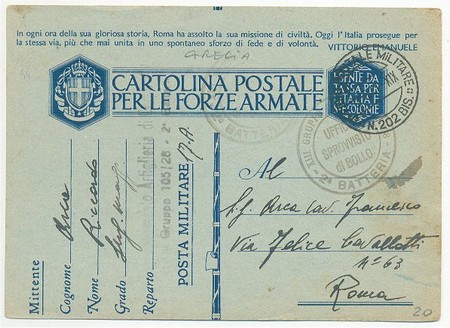 In ogni ora della sua gloriosa storia, Roma ha assolto la sua missione di civiltà. Oggi l'Italia prosegue per
la stessa via, più che mai unita in uno spontaneo sforzo di fede e di volontà. VITTORIO EMANUELE
GRECIA
CARTOLINA POSTALE
PER LE FORZE ARMATE
ESENTE DA
TASSA PER
L'ITALIA E
COLONIE
POSTALE MILITARE
N. 202 BIS.
XIX
2ª BATTERIA
XIII GRUPPO
UFFICIO
SPROVVISTO
di BOLLO
2ª BATTERIA
Artiglieria di
Gruppo 105/28 - 2ª
Mittente
Cognome Orca
Nome Riccardo
Grado
Reparto
POSTA MILITARE 17.A.
Al
Sig. Orca Cav. Francesco
Via Felice Cavallotti
nº 63
Roma
20